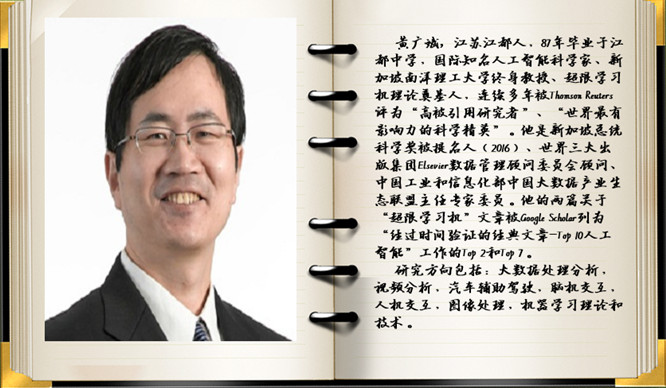 黄广斌，江苏江都人，87年毕业于江
都中学，国际知名人工智能科学家、新
加坡南洋理工大学终身教授、超限学习
机理论奠基人，连续多年被Thomson Reuters
评为“高被引用研究者”、“世界最有
影响力的科学精英”。他是新加坡总统
科学奖被提名人（2016）、世界三大出
版集团Elsevier数据管理顾问委员会顾问、
中国工业和信息化部中国大数据产业生
态联盟主任专家委员。他的两篇关于
“超限学习机”文章被Google Scholar列为
“经过时间验证的经典文章—Top 10人工
智能”工作的Top 2和Top 7。
研究方向包括：大数据处理分析，
视频分析，汽车辅助驾驶，脑机交互，
人机交互，图像处理，机器学习理论和
技术。